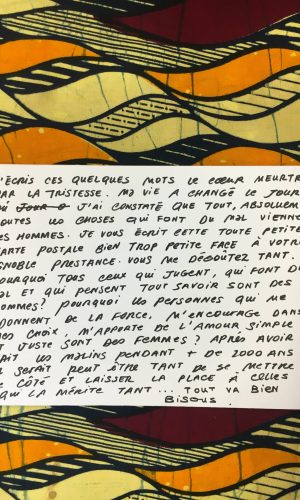 'ÉCRIS CES QUELQUES MOTS LE CŒUR MEURTR
AR LA TRISTESSE. MA VIE A CHANGÉ LE JOUR
J'AI CONSTATÉ QUE TOUT, ABSOLUEM
OUTES LES CHOSES QUI FONT DU MAL VIENNE
ES HOMMES. JE VOUS ÉCRIT CETTE TOUTE PETITE
ARTE POSTALE BIEN TROP PETITE FACE À VOTR
GNOBLE PRESTANCE. VOUS ME DÉGOÛTEZ TANT.
OURQUOI TOUS CEUX QUI JUGENT, QUI FONT D
AL ET QUI PENSENT TOUT SAVOIR SONT DES
OMMES? POURQUOI LES PERSONNES QUI ME
DONNENT DE LA FORCE, M'ENCOURAGE DANS
ES CHOIX, M'APPORTE DE L'AMOUR SIMPLE
T JUSTE SONT DES FEMMES? APRÈS AVOIR
AIT LES MALINS PENDANT + DE 2000 ANS
L SERAIT PEUT ÊTRE TANT DE SE METTRE
E CÔTÉ ET LAISSER LA PLACE À CELLES
QUI LA MÉRITE TANT... TOUT VA BIEN
BISOUS!